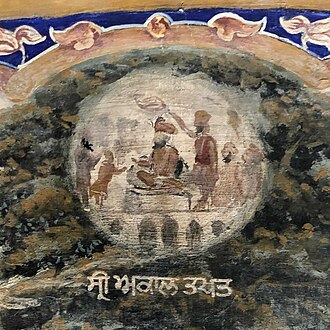 ਸ੍ਰੀ ਅਕਾਲ ਤਖਤ